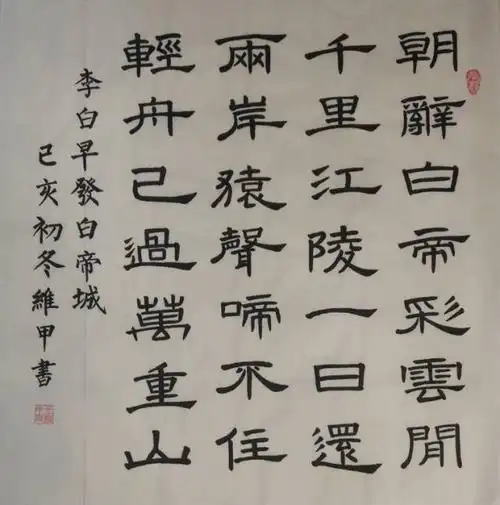 朝辭白帝彩雲閒
千里江陵一日還
兩岸猿聲啼不住
輕舟已過萬重山
李白早發白帝城
己亥初冬維甲書